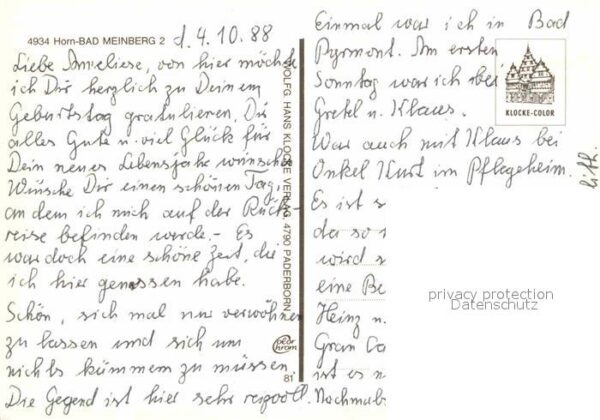 4934 Horn-BAD MEINBERG 2
d. 4.10.88
Liebe Anneliese, von hier möchte
ich Dir herzlich zu Deinem
Geburtstag gratulieren, Dir
alles Gute u. viel Glück für
Dein neues Lebensjahr wünschen
Wünsche Dir einen schönen Tag,
an dem ich mich auf der Rück-
reise befinden werde. - Es
war doch eine schöne Zeit, die
ich hier genossen habe.
Schön, sich mal nur verwöhnen
zu lassen und sich um
nichts kümmern zu müssen.
Die Gegend ist hier sehr reizvoll.
WOLFG. HANS KLOCKE VERLAG, 4790 PADERBORN
color
chrom
81
Einmal war ich in Bad
Pyrmont. Am ersten
Sonntag war ich bei
Gretel u. Klaus.
War auch mit Klaus bei
Onkel Kurt im Pflegeheim.
Es ist s
da so
wird s
eine Be
Heinz u.
Gran Ca
ist es n
Nochmals
KLOCKE-COLOR
privacy protection
Datenschutz